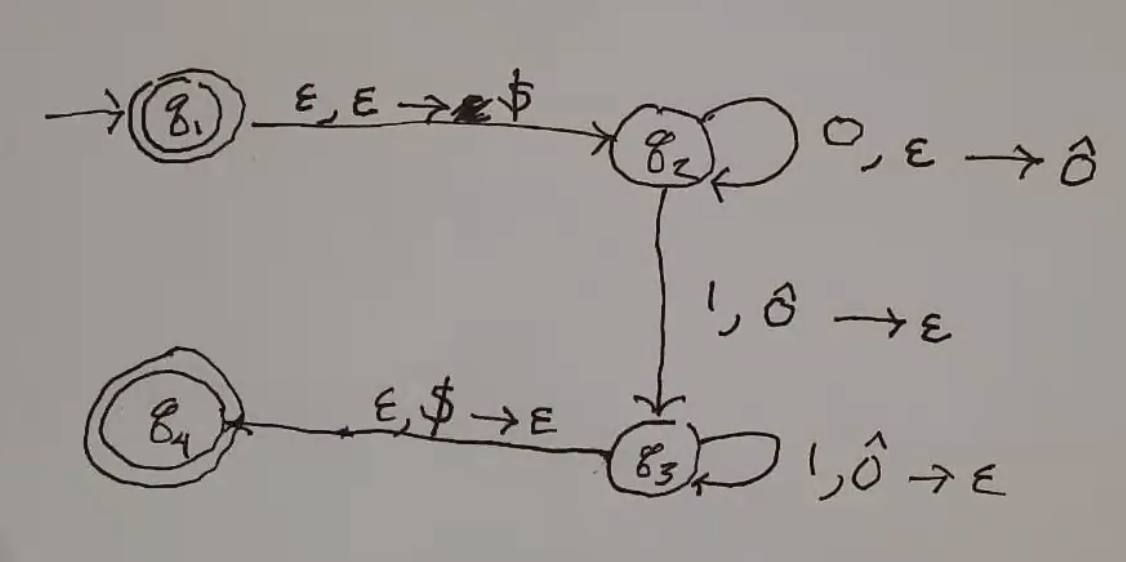 q₁ ε, ε → $ q₂ 0, ε → ô
1, ô → ε
q₄ ε, $ → ε q₃ 1, ô → ε